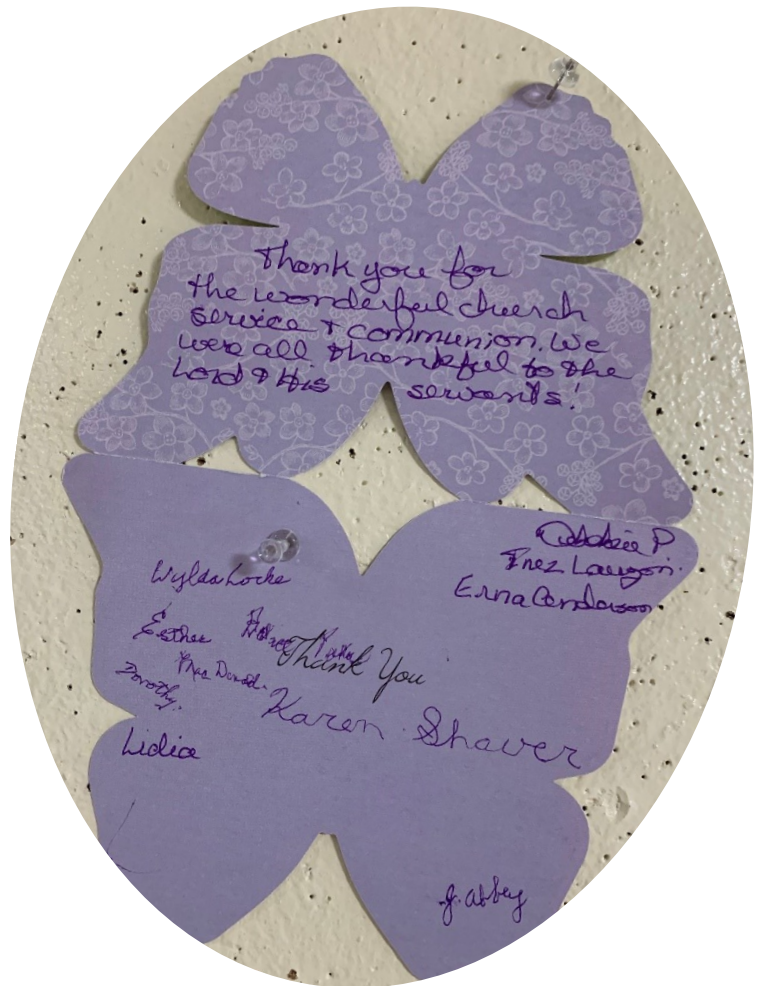 Thank you for
the wonderful church
service & communion. We
were all thankful to the
Lord & His servants!
P
Inez Lauzon.
Erna Anderson
Wylda Locke
Esther
Thank You
Dorothy.
Karen Shaver
Lidia
J. Abbey